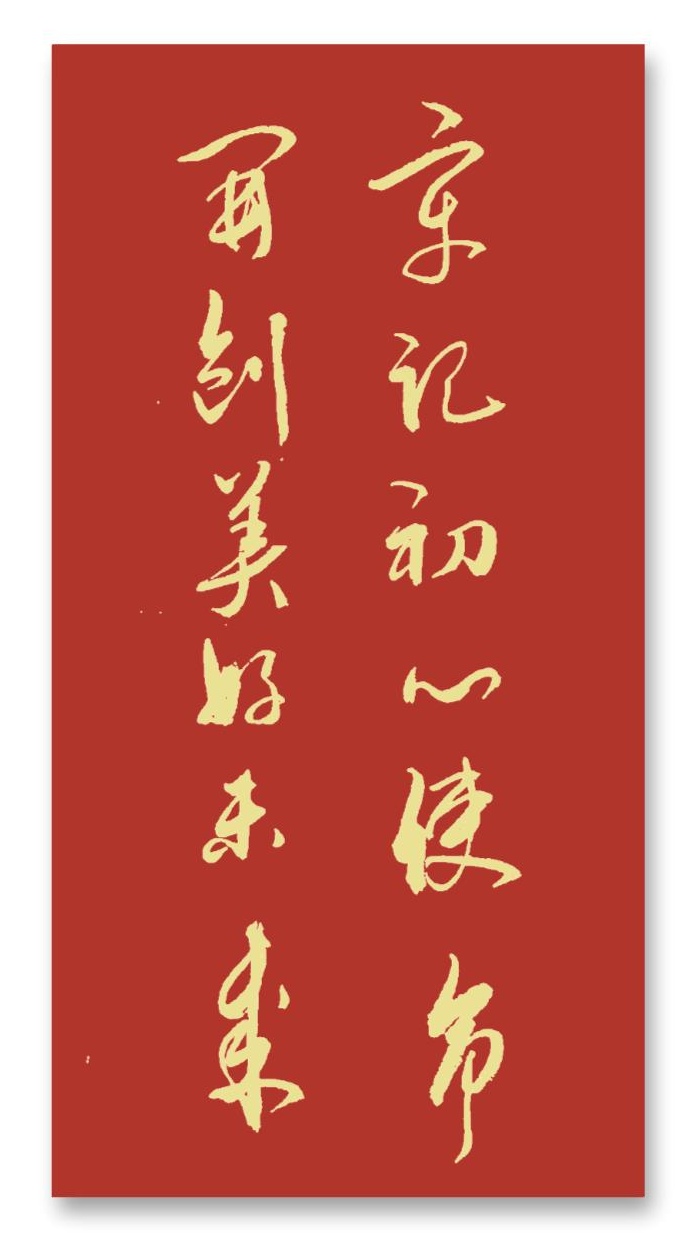 牢记初心使命
再创美好未来